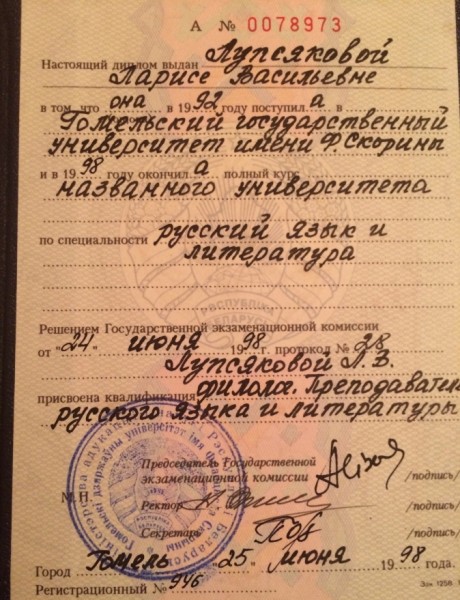 А № 0078973
Лупсяковой
Настоящий диплом выдан
Ларисе Васильевне
в том, что она в 1992 году поступила в
Гомельский государственный
университет имени Ф.Скорины
и в 1998 году окончила полный курс
названного университета
по специальности русский язык и
литература
РЭСПУБЛІКА
БЕЛАРУСЬ
Решением Государственной экзаменационной комиссии
от "24" июня 1998 г. протокол № 2/8
Лупсяковой Л.В.
присвоена квалификация Филолог. Преподаватель
русского языка и литературы
Председатель Государственной
экзаменационной комиссии /подпись/
М.П.
Ректор /подпись/
Секретарь /подпись/
Город Гомель "25" июня 1998 года.
Регистрационный № 946
Зак. 1258